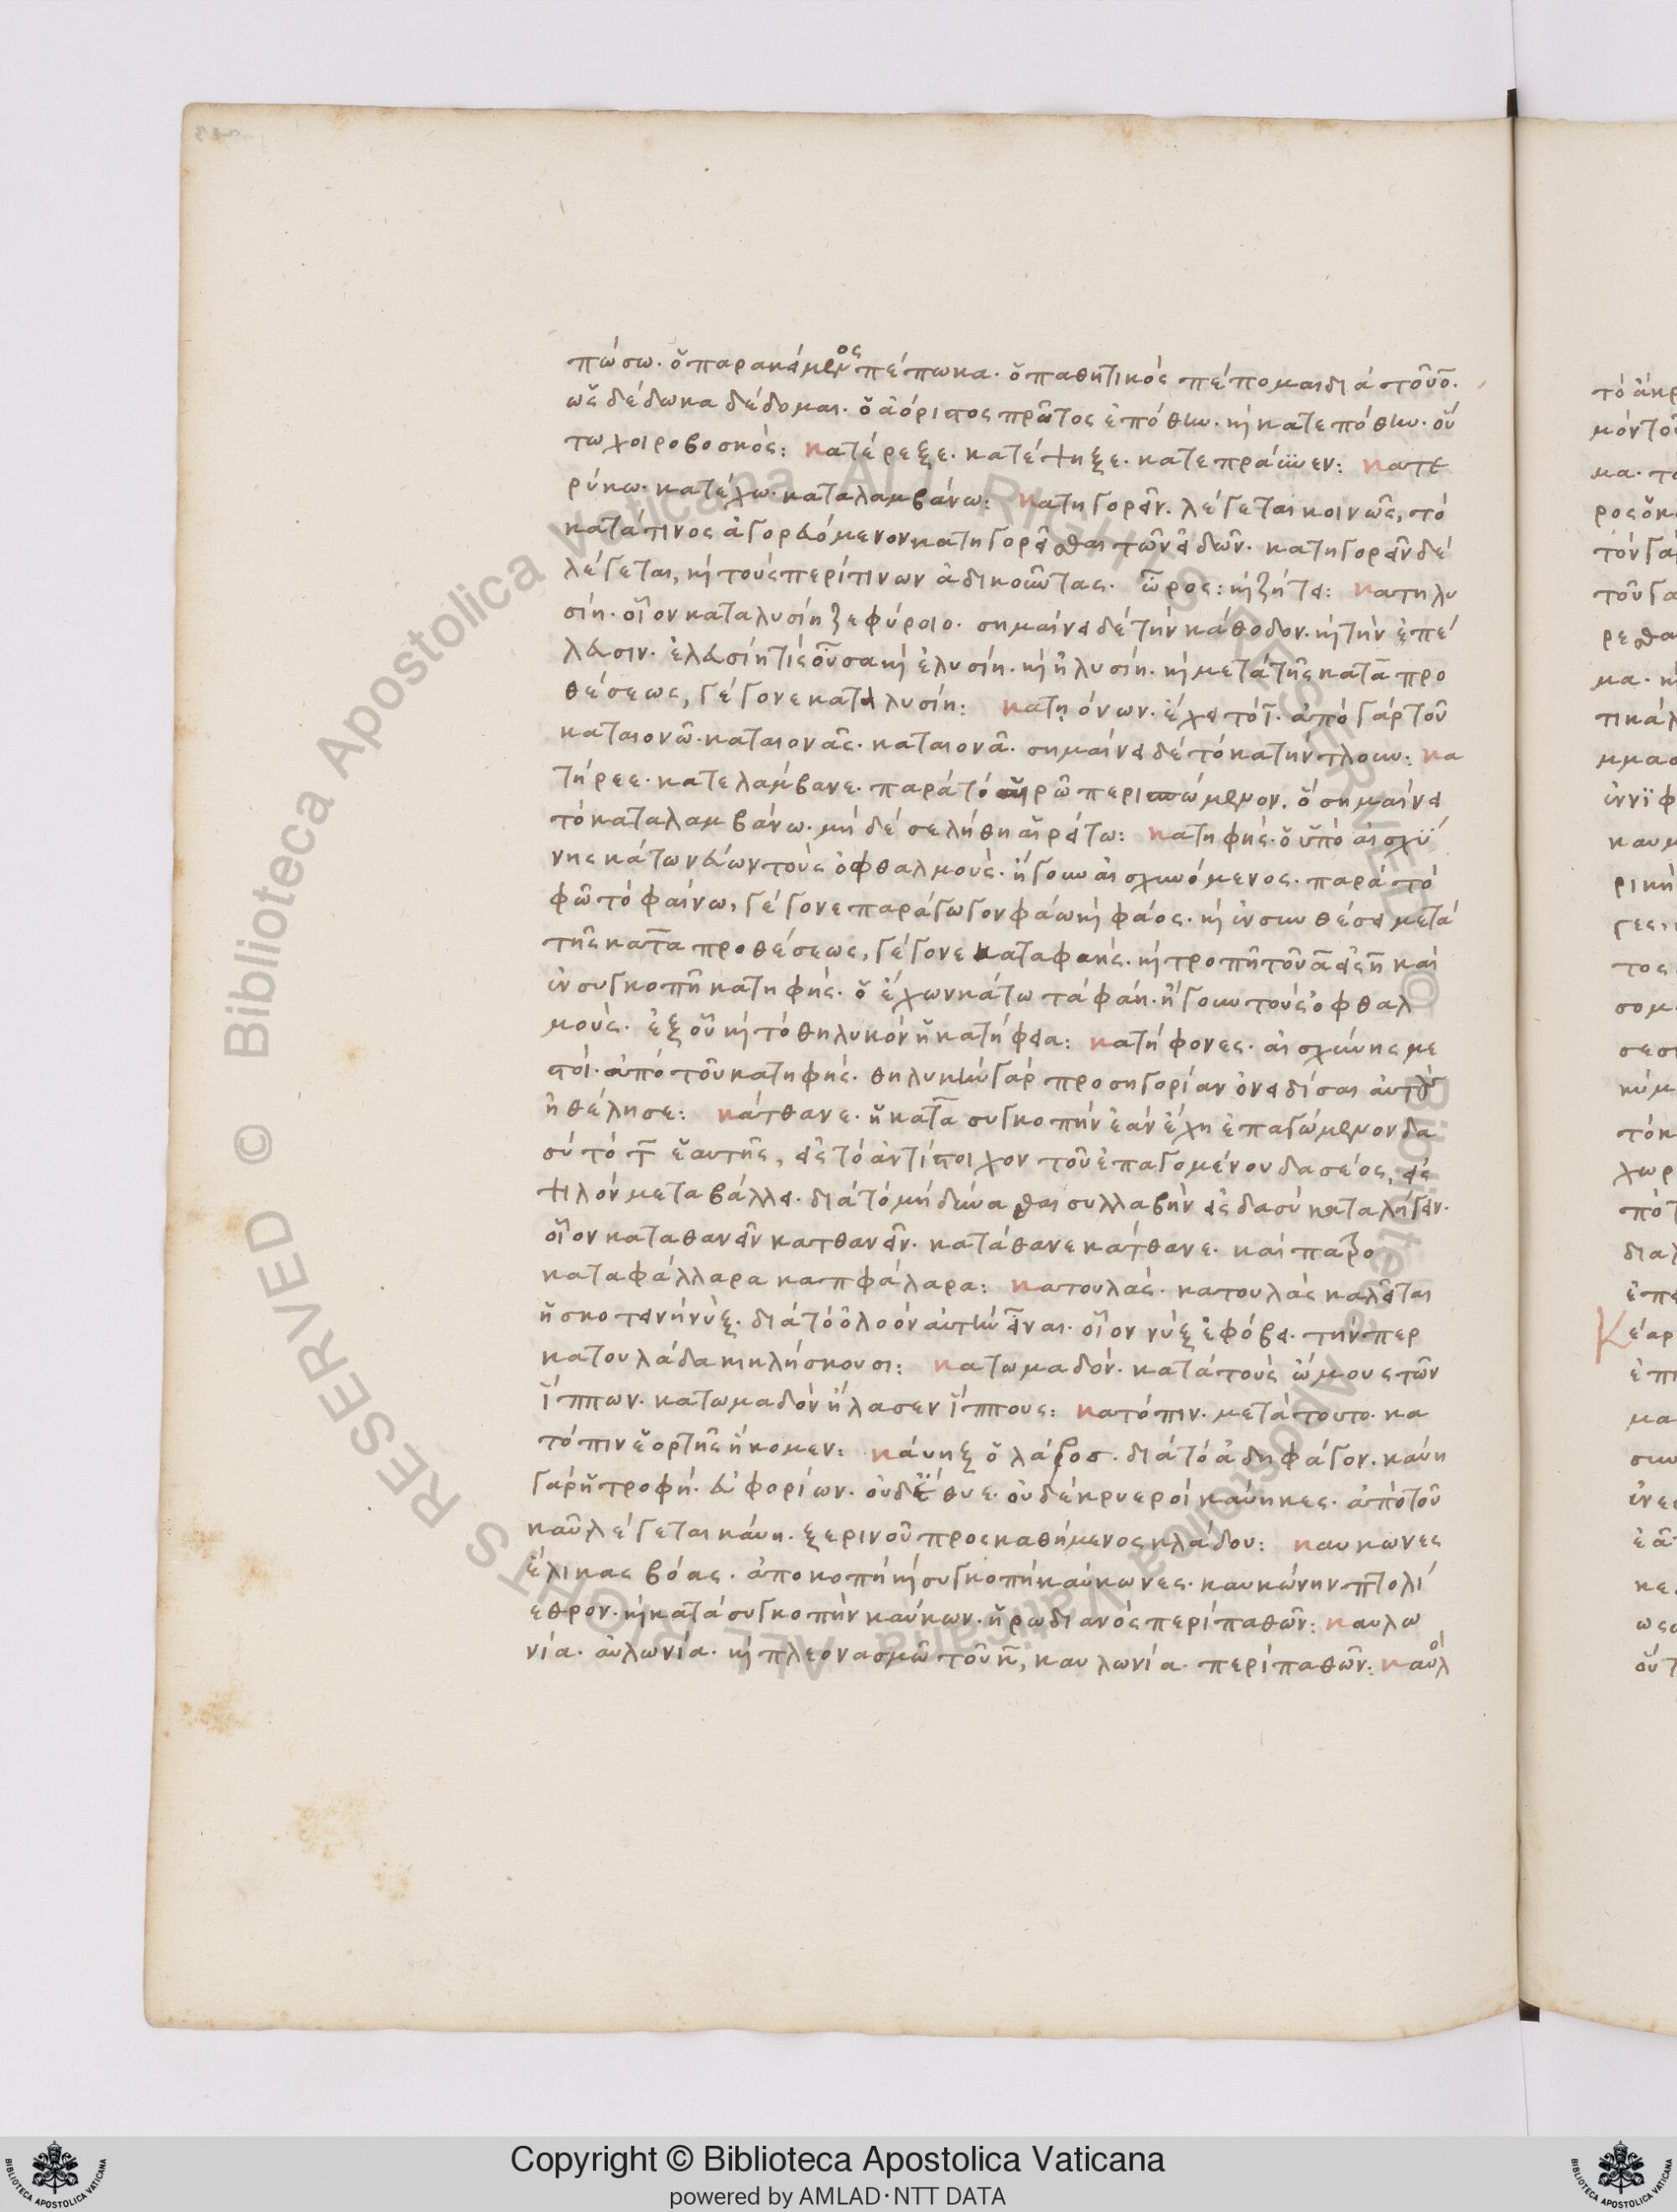 πώσω· ὁ παρακείμενος πέπωκα· ὁ παθητικὸς πέπομαι διὰ τοῦ ο·
ὡς δέδωκα δέδομαι· ὁ ἀόριστος πρῶτος ἐπόθην· κὴ κατεπόθην· οὕ
τω χοιροβοσκός: κατέρεξε· κατέψηξε· κατεπράϋνεν: κατε
ρύκω· κατέχω· καταλαμβάνω: κατηγορεῖν· λέγεται κοινῶς, τὸ
κατά τινος ἀγορευόμενον κατηγορεῖσθαι τῶν εἰδῶν· κατηγορεῖν δὲ
λέγεται, κὴ τοὺς περί τινων ἀδικοῦντας· ὦρος: κὴ ζήτει: κατηλυ
σίη· οἷον καταλυσίη ζεφύροιο· σημαίνει δὲ τὴν κάθοδον· κὴ τὴν ἐπέ
λευσιν· ἐλευσίη τὶς οὖσα κὴ ἐλυσίη· κὴ ἠλυσίη· κὴ μετὰ τῆς κατὰ προ
θέσεως, γέγονε καταλυσίη: κατῃόνων· ἔχει τὸ ι· ἀπὸ γὰρ τοῦ
καταιονῶ· καταιονᾶς· καταιονᾶ· σημαίνει δὲ τὸ κατήντλουν: κα
τήρεε· κατελάμβανε· παρὰ τὸ αἱρῶ περισπώμενον· ὃ σημαίνει
τὸ καταλαμβάνω· μὴ δέ σε λήθη αἱρείτω: κατηφής· ὁ ὑπὸ αἰσχύ
νης κάτω νεύων τοὺς ὀφθαλμούς· ἤγουν αἰσχυνόμενος· παρὰ τὸ
φῶ τὸ φαίνω, γέγονε παράγωγον φάω κὴ φάος· κὴ ἐν συνθέσει μετὰ
τῆς κατὰ προθέσεως, γέγονε καταφαής· κὴ τροπῇ τοῦ α εἰς η καὶ
ἐν συγκοπῇ κατηφής· ὁ ἔχων κάτω τὰ φάη· ἤγουν τοὺς ὀφθαλ
μούς· ἐξ οὗ κὴ τὸ θηλυκὸν ἡ κατήφεια: κατήφονες· αἰσχύνης με
στοί· ἀπὸ τοῦ κατηφής· θηλυκὴν γὰρ προσηγορίαν ὀνειδίσαι αὐτοὺς
ἠθέλησε: κάτθανε· ἡ κατὰ συγκοπὴν ἐὰν ἔχη ἐπαγώμενον δα
σὺ τὸ τ ἑαυτῆς, εἰς τὸ ἀντίστοιχον τοῦ ἐπαγομένου δασέος, εἰς
ψιλὸν μεταβάλλει· διὰ τὸ μὴ δύνασθαι συλλαβὴν εἰς δασὺ καταλήγειν·
οἷον καταθανεῖν κατθανεῖν· κατάθανε κάτθανε· καὶ παρὸ
καταφάλλαρα καπφάλαρα: κατουλάς· κατουλὰς καλεῖται
ἡ σκοτεινὴ νύξ· διὰ τὸ ὀλοὸν αὐτὴν εἶναι· οἷον νὺξ ἐφόβει· τήν περ
κατουλάδα κικλήσκουσι: κατωμαδόν· κατὰ τοὺς ὤμους τῶν
ἵππων· κατωμαδὸν ἤλασεν ἵππους: κατόπιν· μετὰ τουτο· κα
τόπιν ἑορτῆς ἥκομεν: κάυηξ ὁ λάρος· διὰ τὸ ἀδηφάγον· καύη
γὰρ ἡ τροφή· εὐφορίων· οὐδ ἔθυε· οὐδὲ κρυεροὶ καύηκες· ἀπὸ τοῦ
καῦ λέγεται κάυη· ξερινοῦ προςκαθήμενος κλάδου: καυκωνες
ἕλικας βόας· ἀποκοπὴ κὴ συγκοπὴ καύκωνες· καυκώνην πτολί
εθρον· κὴ κατὰ συγκοπὴν καύκων· ἡρωδιανὸς περὶ παθῶν: καυλω
νία· αὐλωνία· κὴ πλεονασμῶ τοῦ κ, καυλωνία· περὶ παθῶν: καυλοὶ